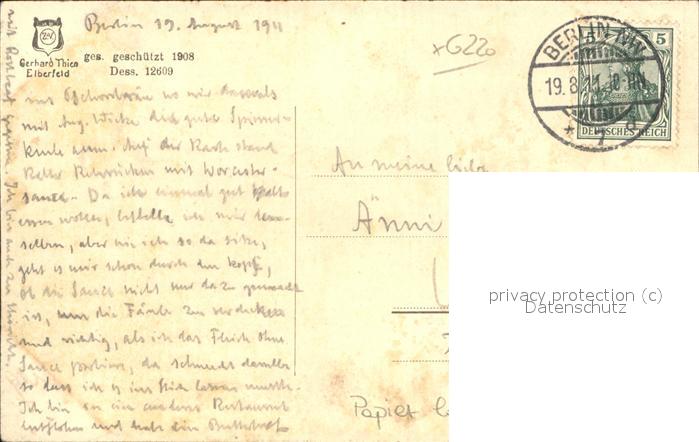 Berlin 19. August 1911
Gerhard Thien
Elberfeld
ges. geschützt 1908
Dess. 12609
+G220
BERLIN NW
19.8.11.
* 7 d
5 5
DEUTSCHES REICH
mit Aug. Wicke die gute Spinner-
keule assen. Auf der Karte stand
Kalter Rehrücken mit Worcester-
sauce. Da ich einmal gut kalt
essen wollte, bestellte ich mir den-
selben, aber wie ich so da sitze,
geht es mir schon durch den Kopf,
ob die Sauce nicht nur dazu gemacht
ist, um die Fäule zu verdecken
und richtig, als ich das Fleisch ohne
Sauce probiere, da schmeckt dasselbe
so dass ich es im Stich lassen musste.
Ich bin in ein anderes Restaurant
entflohen und habe ein Butterbrot
mit gegessen. Ich bin auch zu
An meine liebe
Änni
privacy protection (c)
Datenschutz
Papier